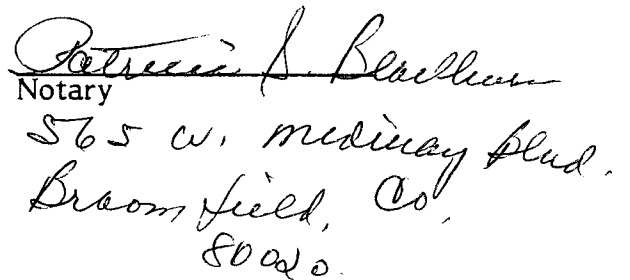 Patricia S. Blackburn
Notary
565 W. Midway Blvd.
Broomfield, Co,
80020.